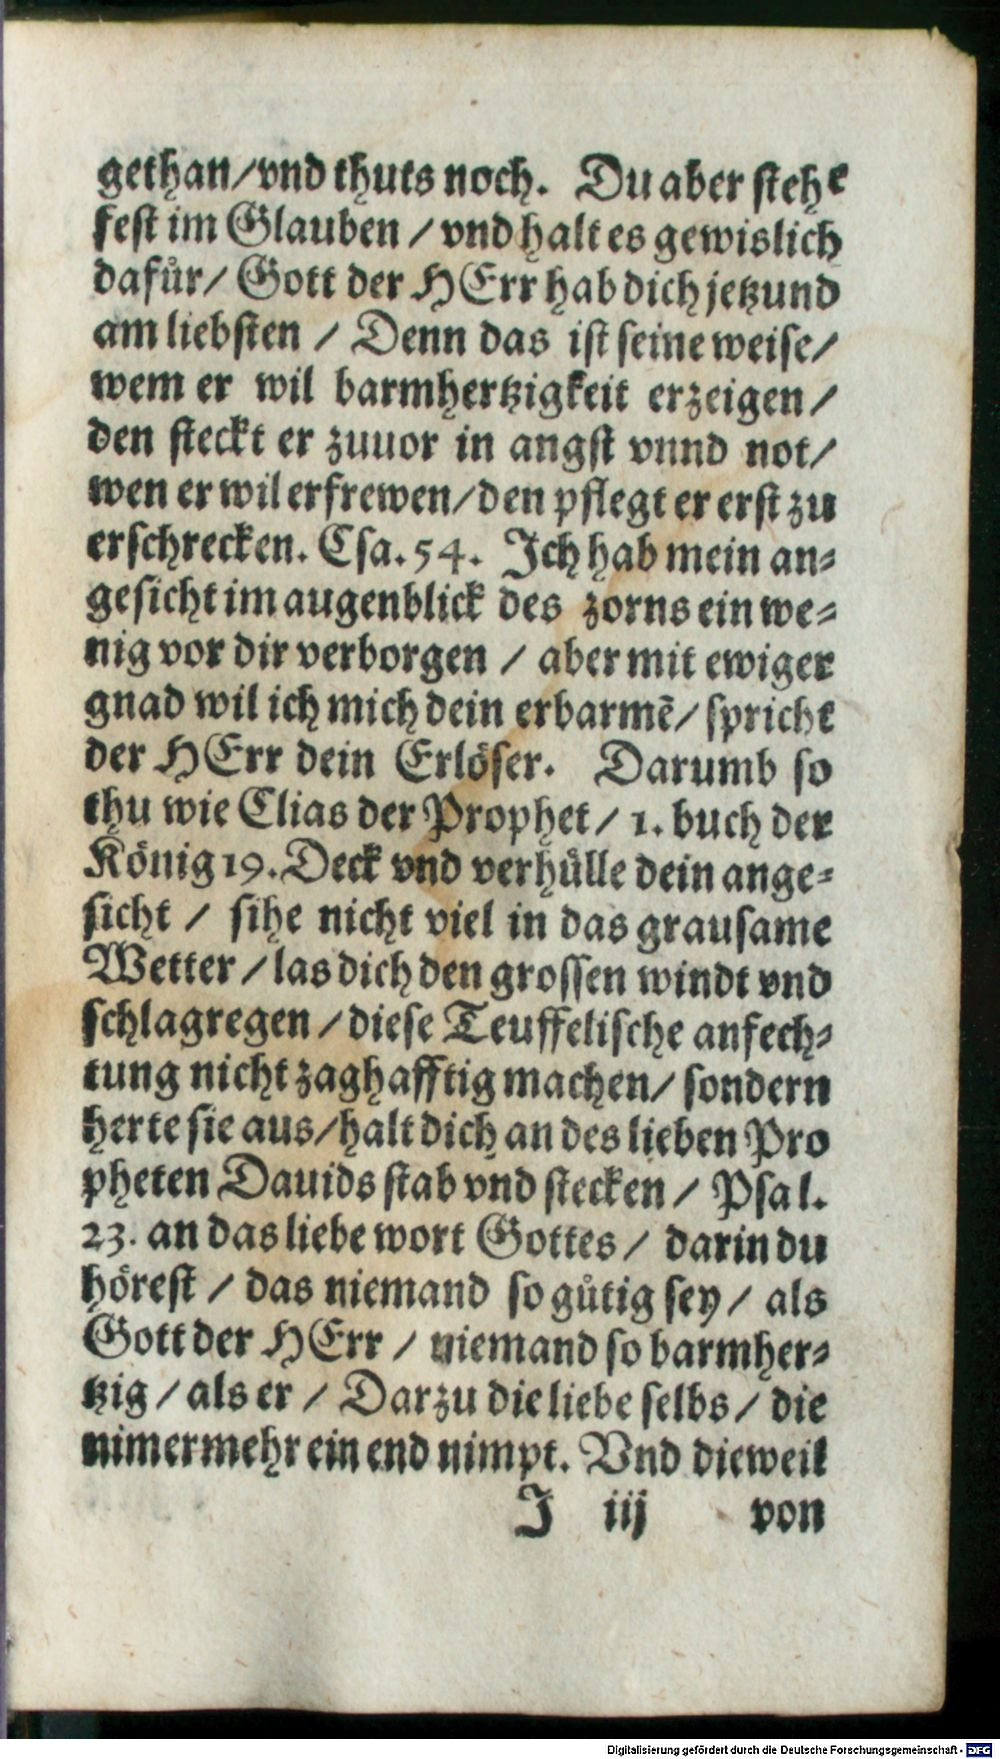 gethan/vnd thuts noch. Du aber stehe
fest im Glauben / vnd halt es gewislich
dafuͤr/ Gott der HErr hab dich jetzund
am liebsten / Denn das ist seine weise/
wem er wil barmhertzigkeit erzeigen/
den steckt er zuuor in angst vnnd not/
wen er wil erfrewen/den pflegt er erst zu
erschrecken. Esa. 54. Ich hab mein an⸗
gesicht im augenblick des zorns ein we⸗
nig vor dir verborgen / aber mit ewiger
gnad wil ich mich dein erbarmē/ spricht
der HErr dein Erloͤser. Darumb so
thu wie Elias der Prophet / 1. buch der
Koͤnig 19. Deck vnd verhuͤlle dein ange⸗
sicht / sihe nicht viel in das grausame
Wetter / las dich den grossen windt vnd
schlagregen / diese Teuffelische anfech⸗
tung nicht zaghafftig machen/ sondern
herte sie aus/halt dich an des lieben Pro
pheten Dauids stab vnd stecken / Psal.
23. an das liebe wort Gottes / darin du
hoͤrest / das niemand so guͤtig sey / als
Gott der HErr / niemand so barmher⸗
tzig / als er / Darzu die liebe selbs / die
nimermehr ein end nimpt. Vnd dieweil
J iij von
Digitalisierung gefördert durch die Deutsche Forschungsgemeinschaft - DFG